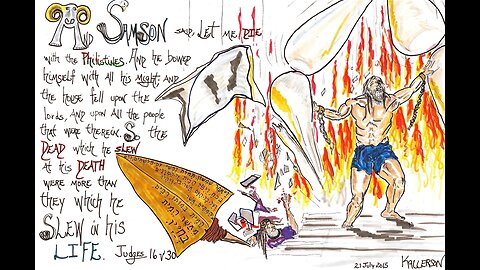 AND SAMSON SAID, LET ME DIE
with the Philistines. And he bowed
himself with all his might; and
the house fell upon the
lords, And upon All the people
that were therein. So the
DEAD which he slew
at his DEATH
were more than
they which he
SLEW in his
LIFE. Judges 16 v 30
21 July 2015 KALLERSON